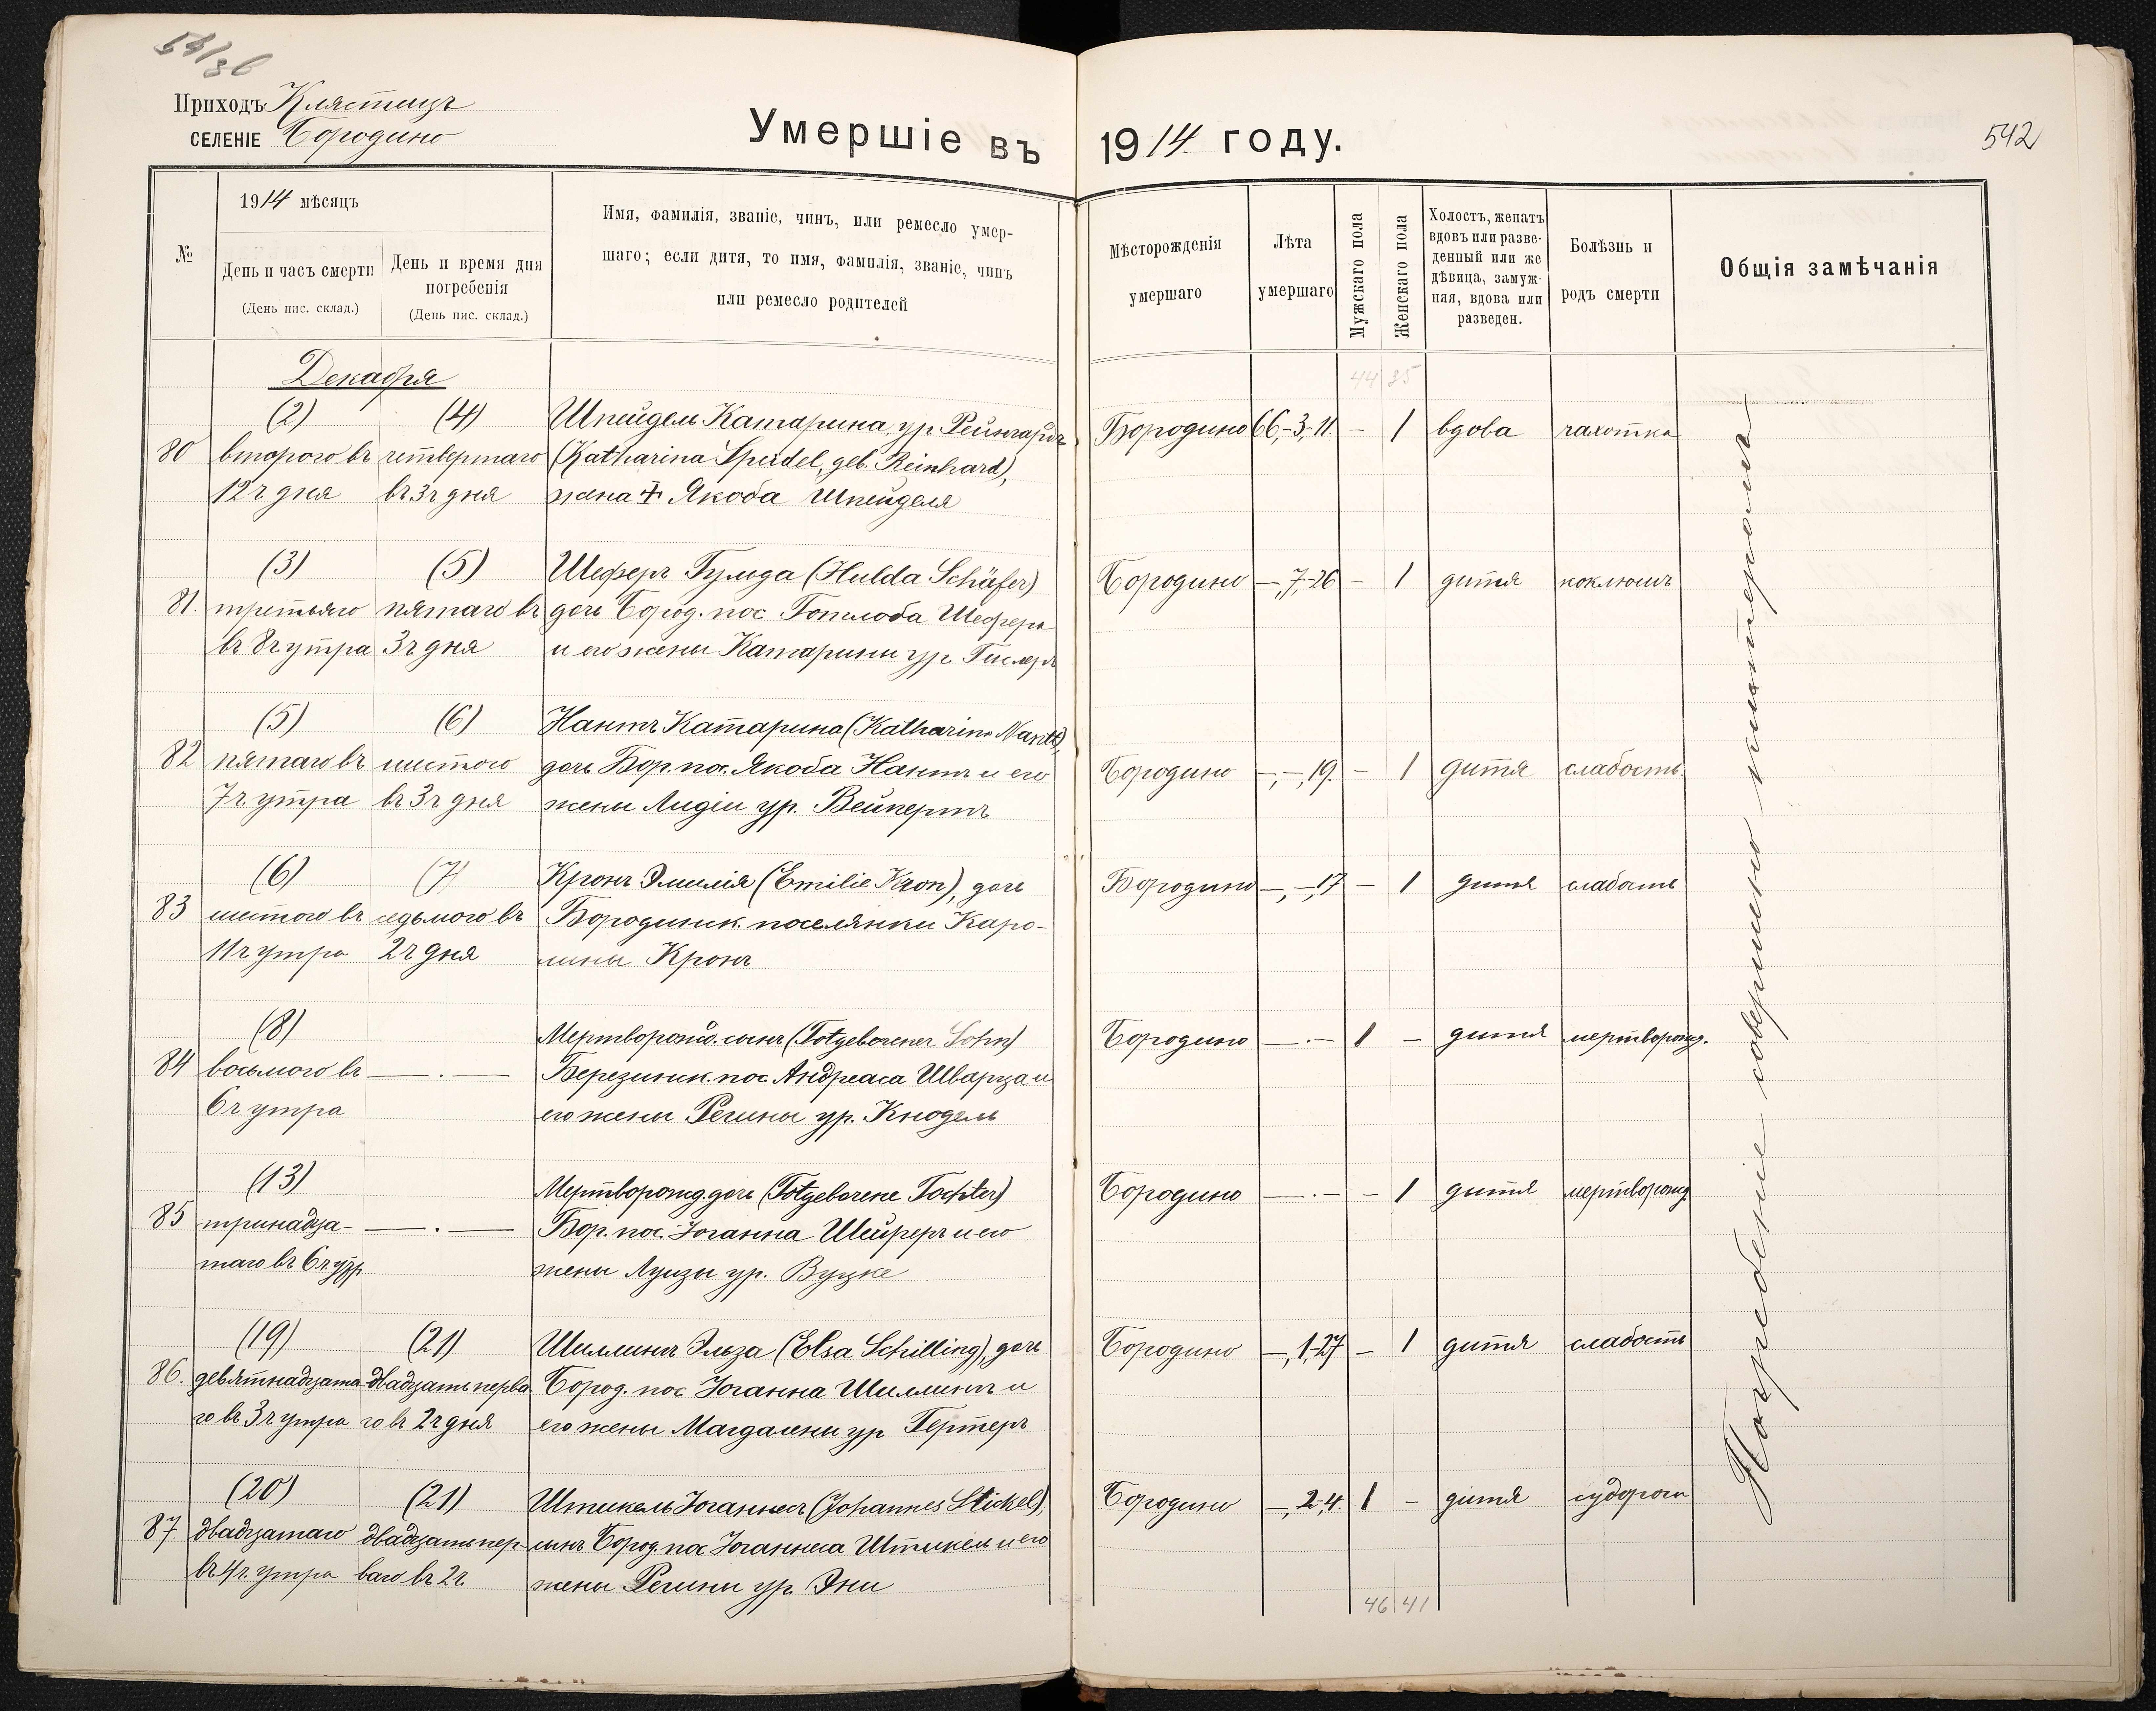 54/36
Приходъ Клястицъ
СЕЛЕНІЕ Бородино
Умершіе въ 1914 году.
542
№
1914 мѣсяцъ
День и часъ смерти
(День пис. склад.)
День и время дня
погребенія
(День пис. склад.)
Имя, фамилія, званіе, чинъ, или ремесло умер-
шаго; если дитя, то имя, фамилія, званіе, чинъ
или ремесло родителей
Мѣсторожденія
умершаго
Лѣта
умершаго
Мужскаго пола
Женскаго пола
Холостъ, женатъ
вдовъ или разве-
денный или же
дѣвица, замуж-
няя, вдова или
разведен.
Болѣзнь и
родъ смерти
Общія замѣчанія
Декабря
44 35
(2) (4) Шпейдель Катарина ур. Рейнгардъ Бородино 66,-3,-11. – 1 вдова чахотка
80 второго въ четвертаго (Katharina Speidel, geb. Reinhard),
12 ч дня въ 3 ч дня жена ✝ Якоба Шпейделя
(3) (5) Шеферъ Гульда (Hulda Schäfer) Бородино –,7,-26 – 1 дитя коклюшъ
81. третьяго пятаго въ дочь Бород. пос. Готлоба Шефера
въ 8 ч утра 3 ч дня и его жены Катарины ур.
(5) (6) Нантъ Катарина (Katharina Nantt),
82 пятаго въ шестого дочь Бор. пос. Якоба Нантъ и его Бородино –,–,19. – 1 дитя слабость.
7 ч. утра въ 3 ч дня жены Лидіи ур. Вейпертъ
(6) (7) Кронъ Эмилія (Emilie Kron), дочь Бородино –,–,17 – 1 дитя слабость
83 шестого въ седьмого въ Бородинск. поселянки Каро-
11 ч утра 2 ч дня лины Кронъ
(8) Мертворожд. сынъ (Totgeborener Sohn) Бородино —.— 1 – дитя мертворожд.
84 восьмого въ —.— Березинск. пос. Андреаса Шварца и
6 ч утра его жены Регины ур. Кнодель
(13) Мертворожд. дочь (Totgeborene Tochter) Бородино —.— – 1 дитя мертворожд
85 тринадца- —.— Бор. пос. Іоганна Шейреръ и его
таго въ 6 ч утр жены Луизы ур. Вуцке
(19) (21) Шиллингъ Эльза (Elsa Schilling), дочь Бородино –,1,-27 – 1 дитя слабость
86. девятнадцата- двадцать перва Бород. пос. Іоганна Шиллингъ и
го въ 3 ч утра го въ 2 ч дня его жены Магдалены ур Гертеръ
(20) (21) Штикель Іоганнесъ (Johannes Stickel), Бородино –,2,-4 1 – дитя судороги
87. двадцатаго двадцать пер- сынъ Бород. пос Іоганнеса Штикель и его
въ 4 ч. утра ваго въ 2 ч. жены Регины ур. Эни
46 41
Погребеніе совершено кистеромъ